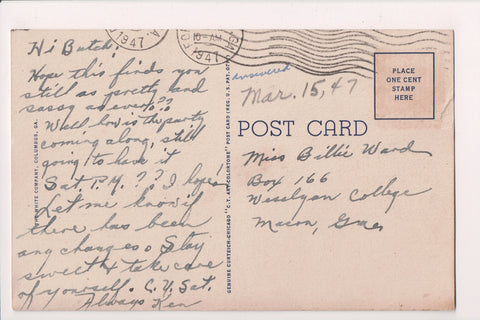 Hi Butch!
Hope this finds you
still as pretty and
sassy as ever??
Well how is the party
coming along, still
going to have it
Sat. P.M.?? I hope!
Let me know if
there has been
any changes. Stay
sweet & take care
of yourself. C.Y. Sat.
Always Ken
1947
10-AM
1947
answered
Mar. 15, 47
PLACE
ONE CENT
STAMP
HERE
POST CARD
Miss Billie Ward
Box 166
Wesslyan College
Macon, Ga.
WHITE COMPANY, COLUMBUS, GA.
GENUINE CURTEICH-CHICAGO "C.T. ART-COLORTONE" POST CARD (REG. U.S. PAT. OFF.)